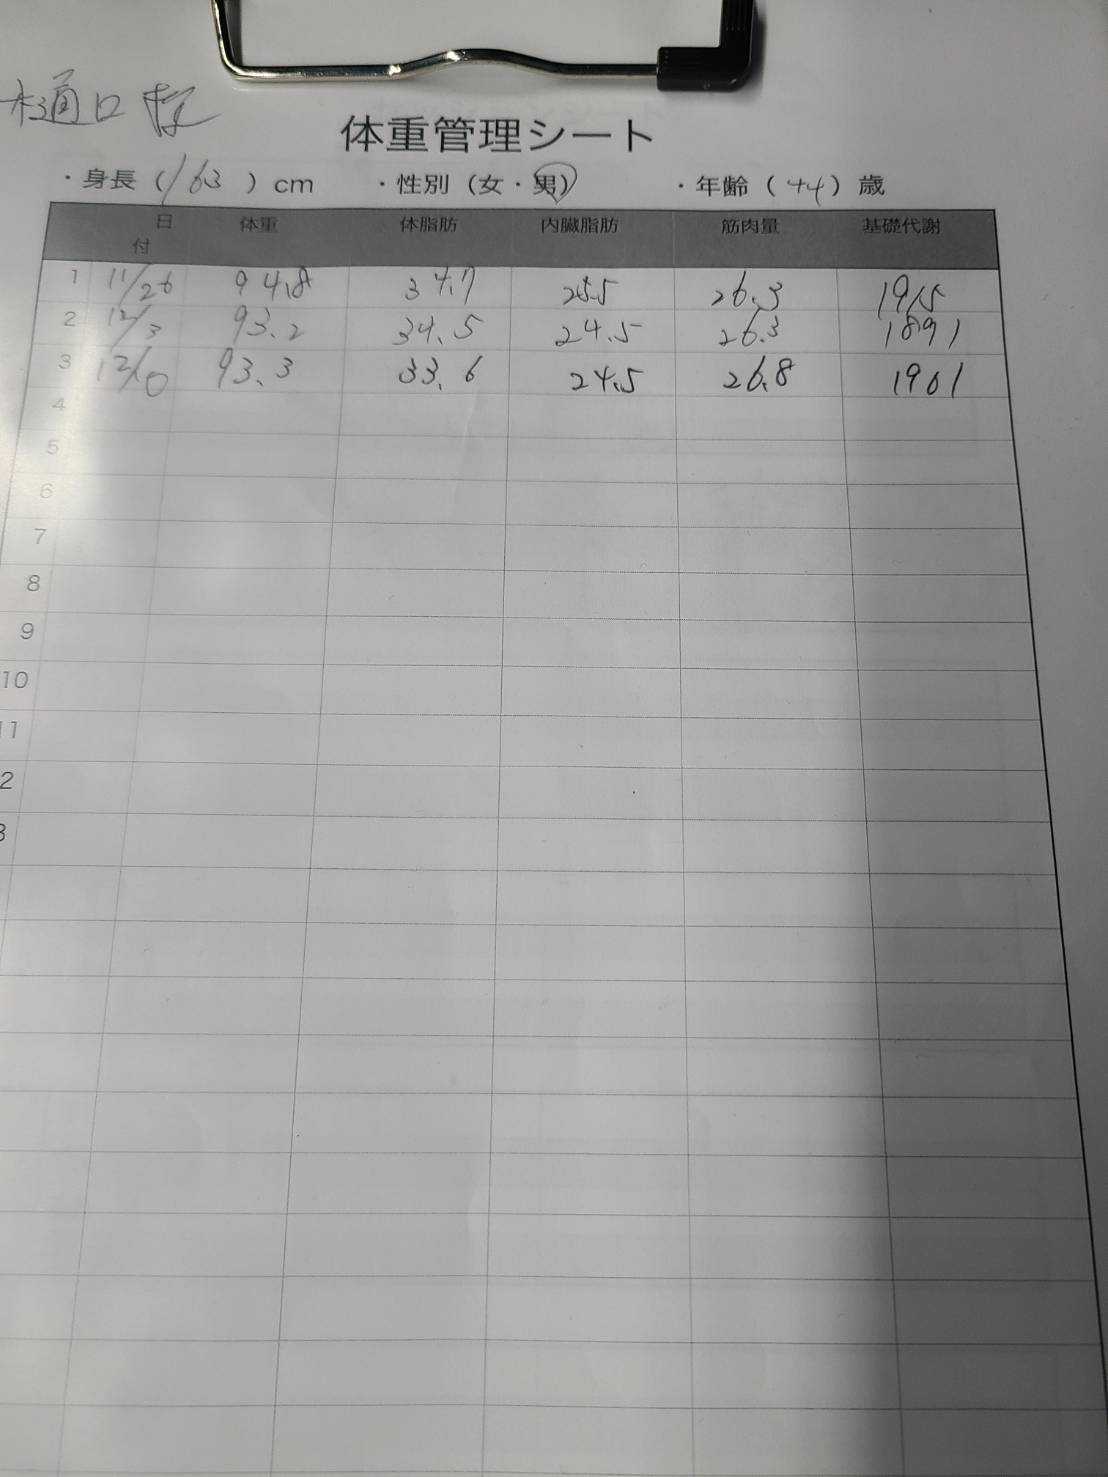 樋口
体重管理シート
・身長 ( 163 ) cm ・性別 (女・男) ・年齢 ( 44 ) 歳
日付 体重 体脂肪 内臓脂肪 筋肉量 基礎代謝
1 11/26 94.8 34.7 25.5 26.3 1915
2 12/3 93.2 34.5 24.5 26.3 1891
3 12/10 93.3 33.6 24.5 26.8 1901
4
5
6
7
8
9
10
11
2
3